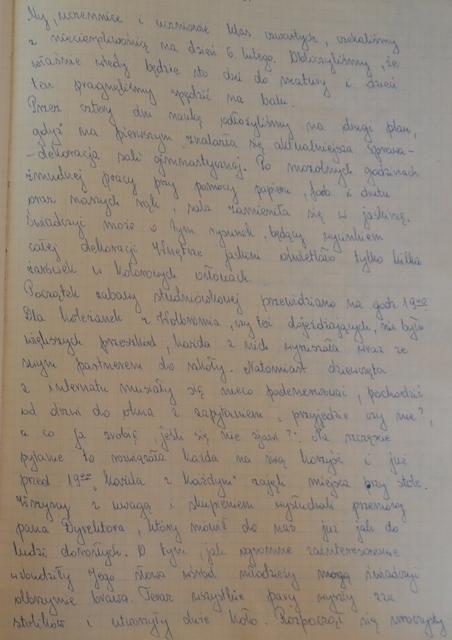 My, uczennice i uczniowie klas czwartych, czekaliśmy
z niecierpliwością na dzień 6 lutego. Obliczyliśmy, że
właśnie wtedy będzie sto dni do matury i dzień
ten pragnęliśmy spędzić na balu.
Przez cztery dni naukę odłożyliśmy na drugi plan,
gdyż na pierwszym znalazła się aktualniejsza sprawa-
-dekoracja sali gimnastycznej. Po mozolnych godzinach
żmudnej pracy przy pomocy papieru, farb i drutu
oraz naszych rąk, sala zamieniła się w jaskinię.
Świadczyć może o tym rysunek, będący wycinkiem
całej dekoracji. Wnętrze jaskini oświetlało tylko kilka
żarówek w kolorowych
Początek zabawy studniówkowej przewidziano na godz. 19⁰⁰.
Dla koleżanek z Wolbromia, czy też dojeżdżających, nie było
większych przeszkód, każda z nich wyruszała wraz ze
swym partnerem do szkoły. Natomiast dziewczęta
z internatu musiały się nieco podenerwować, podchodzić
od drzwi do okna z zapytaniem: przyjedzie czy nie?,
a co ja zrobię, jeśli się nie zjawi?. Na szczęście
pytanie to rozwiązała każda na swą korzyść i już
przed 19⁰⁰ "każda z każdym" zajęli miejsca przy stole.
Wszyscy z uwagą i skupieniem wysłuchali przemowy
pana Dyrektora, który mówił do nas już jak do
ludzi dorosłych. O tym jak ogromne zainteresowanie
wzbudziły Jego słowa wśród młodzieży mogą świadczyć
olbrzymie brawa. Teraz wszystkie pary wyszły zza
stolików i utworzyły duże koło. Rozpoczął się uroczysty